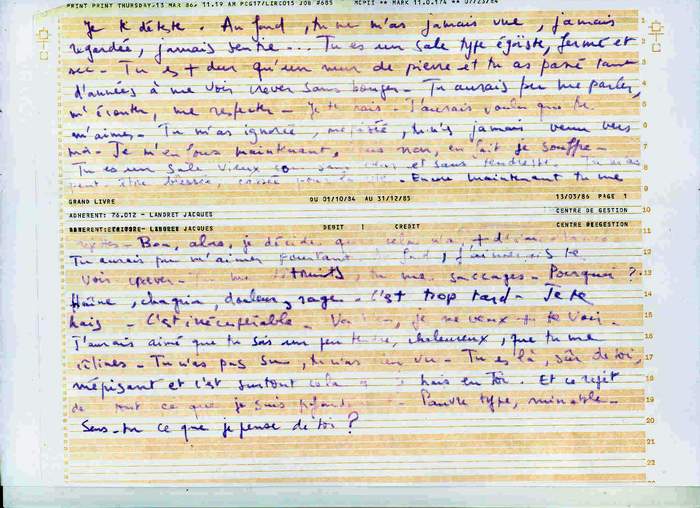 PRINT PRINT THURSDAY-13 MAR 86, 11.19 AM PCG17/LIRCO15 JOB #685 MCPII ** MARK 11.0.174 ** 07/23/84
Je te déteste. Au fond, tu ne m'as jamais vue, jamais
regardée, jamais sentie... Tu es un sale type égoïste, fermé et
sec. Tu es + dur qu'un mur de pierre et tu as passé tant
d'années à me voir crever sans bouger. Tu aurais pu me parler,
m'écouter, me respecter. Je te hais. J'aurais voulu que tu
m'aimes. Tu m'as ignorée, tu n'as jamais venu vers
moi. Je m'en fous maintenant, non, en fait je souffre.
Tu es un sale vieux con sans cœur et sans tendresse. Tu m'as
peut-être blessée, pour la vie. Encore maintenant tu me
GRAND LIVRE DU 01/10/84 AU 31/12/85 13/03/86 PAGE 1
ADHERENT: 76.012 - LANDRET JACQUES CENTRE DE GESTION
LANDRET JACQUES DEBIT | CREDIT
rejettes. Bon, alors, je décide que cela n'a +
Tu aurais pu m'aimer pourtant. J'aimerais te
voir crever. tu me saccages. Pourquoi ?
Haine, chagrin, douleur, rage. C'est trop tard. Je te
hais. C'est irrécupérable. je ne veux + te voir.
J'aurais aimé que tu sois un peu tendre, chaleureux, que tu me
câlines. Tu n'as pas su, tu n'as rien vu. Tu es là, sûr de toi,
méprisant et c'est surtout cela que je hais en toi. Et ce rejet
de tout ce que je suis Pauvre type, minable.
Sens-tu ce que je pense de toi ?